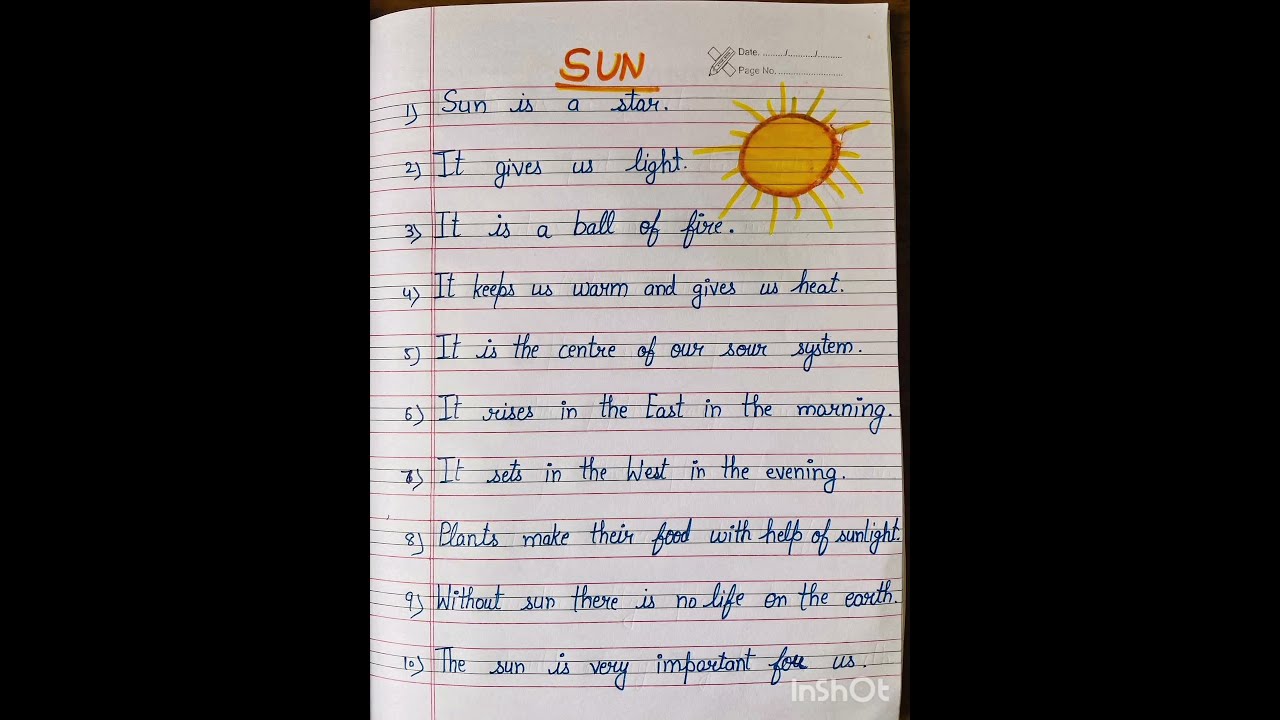 SUN
Date. ......../........../..........
Page No. ........................
1) Sun is a star.
2) It gives us light.
3) It is a ball of fire.
4) It keeps us warm and gives us heat.
5) It is the centre of our sour system.
6) It rises in the East in the morning.
7) It sets in the West in the evening.
8) Plants make their food with help of sunlight.
9) Without sun there is no life on the earth.
10) The sun is very important for us.
InShOt